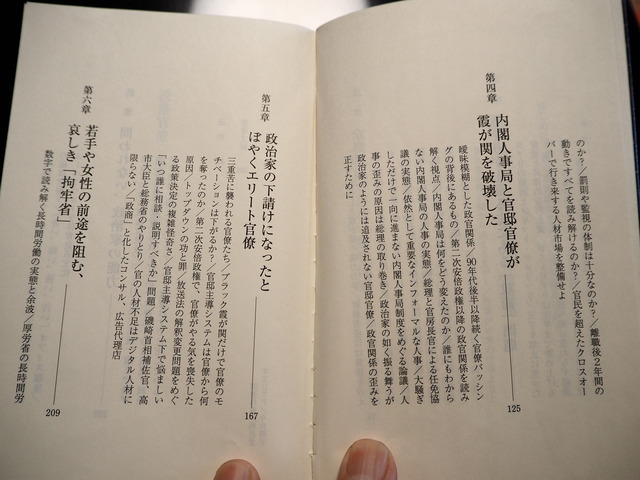 のか？／罰則や監視の体制は十分なのか？／離職後２年間の
動きですべてを読み解けるのか？／官民を超えたクロスオー
バーで行き来する人材市場を整備せよ
第四章
内閣人事局と官邸官僚が
霞が関を破壊した
125
曖昧模糊とした政官関係／90年代後半以降続く官僚バッシン
グの背後にあるもの／第二次安倍政権以降の政官関係を読み
解く視点／内閣人事局は何をどう変えたのか／誰にもわから
ない内閣人事局の人事の実態／総理と官房長官による任免協
議の実態／依然として重要なインフォーマルな人事／大騒ぎ
しただけで一向に進まない内閣人事局制度をめぐる論議／人
事の歪みの原因は総理の取り巻き／政治家の如く振る舞うが
政治家のようには追及されない官邸官僚／政官関係の歪みを
正すために
第五章
政治家の下請けになったと
ぼやくエリート官僚
167
三重苦に襲われる官僚たち／ブラック霞が関だけで官僚のモ
チベーションは下がるか？／官邸主導システムは官僚から何
を奪ったのか／第二次安倍政権で、官僚がやる気を喪失した
原因／トップダウンの功と罪／放送法の解釈変更問題をめぐ
る政策決定の複雑怪奇さ／官邸主導システム下で悩ましい
「いつ誰に相談・説明すべきか」問題／礒崎首相補佐官、高
市大臣と総務省のやりとり／官の人材不足はデジタル人材に
限らない／「政商」と化したコンサル、広告代理店
第六章
若手や女性の前途を阻む、
哀しき「拘牢省」
209
数字で読み解く長時間労働の実態と余波／厚労省の長時間労